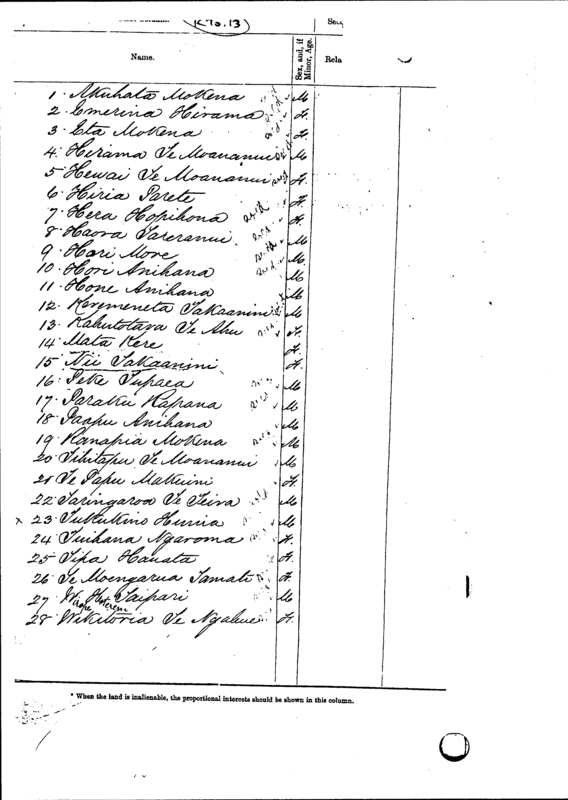 K 70. 13
Name.
Sex, and, if Minor, Age.
Rela
1. Akuhata Mokena M
2 Emerina Hirama F.
3. Eta Mokena F.
4. Hirama Te Moananui M
5 Hewai Te Moananui F.
6 Hiria Parete F.
7. Hera Hopihona F.
8 Haora Tareranui M
9 Hori More M.
10. Hori Anihana M
11. Hone Anihana M
12. Keremeneta Takaanini M
13. Kahutotara Te Ahu F.
14 Mata Kere F.
15 Nii Takaanini F.
16. Peke Tupaea M
17. Paraku Rapana M
18 Paapu Anihana M
19 Ranapia Mokena M
20. Tihitapu Te Moananui M
21 Te Papu Makuini F.
22 Taringaroa Te Teira M
x 23 Tukukino Huruia M
24 Tuihana Ngaroma F.
25 Tipa Hauata F.
26 Te Moengarua Tamati F.
27 Taipari M
28 Wikitoria Te Ngahue F.
* When the land is inalienable, the proportional interests should be shown in this column.